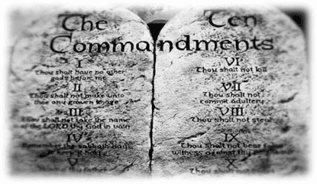 The Ten
Commandments
I
Thou shalt have no other
gods before me
II
Thou shalt not make unto
thee any graven image
III
Thou shalt not take the name
of the LORD thy God in vain
IV
Remember the sabbath day
VI
Thou shalt not kill
VII
Thou shalt not
commit adultery
VIII
Thou shalt not steal
IX
Thou shalt not bear false
witness against thy